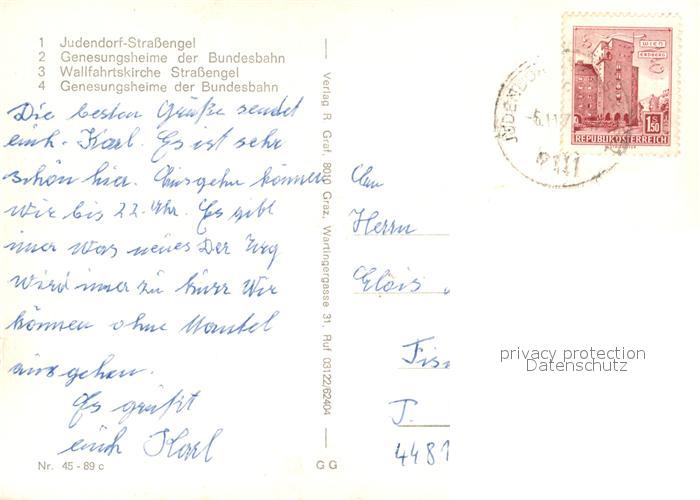 1 Judendorf-Straßengel
2 Genesungsheime der Bundesbahn
3 Wallfahrtskirche Straßengel
4 Genesungsheime der Bundesbahn
Die besten Grüße sendet
euch. Karl. Es ist sehr
schön hier. Ausgehn können
wir bis 22. Uhr. Es gibt
imer was neues Der Weg
wird imer zu kurz Wir
können ohne Mantel
ausgehen.
Es grüßt
euch Karl
Nr. 45 - 89 c
Verlag R. Graf, 8010 Graz, Wartingergasse 31, Ruf 03122/62404
G G
WIEN
ERDBERG
S 1.50
REPUBLIK ÖSTERREICH
JUDENDO
-5.11.7
An
Herrn
Elois
Fis
P.
4481
privacy protection
Datenschutz